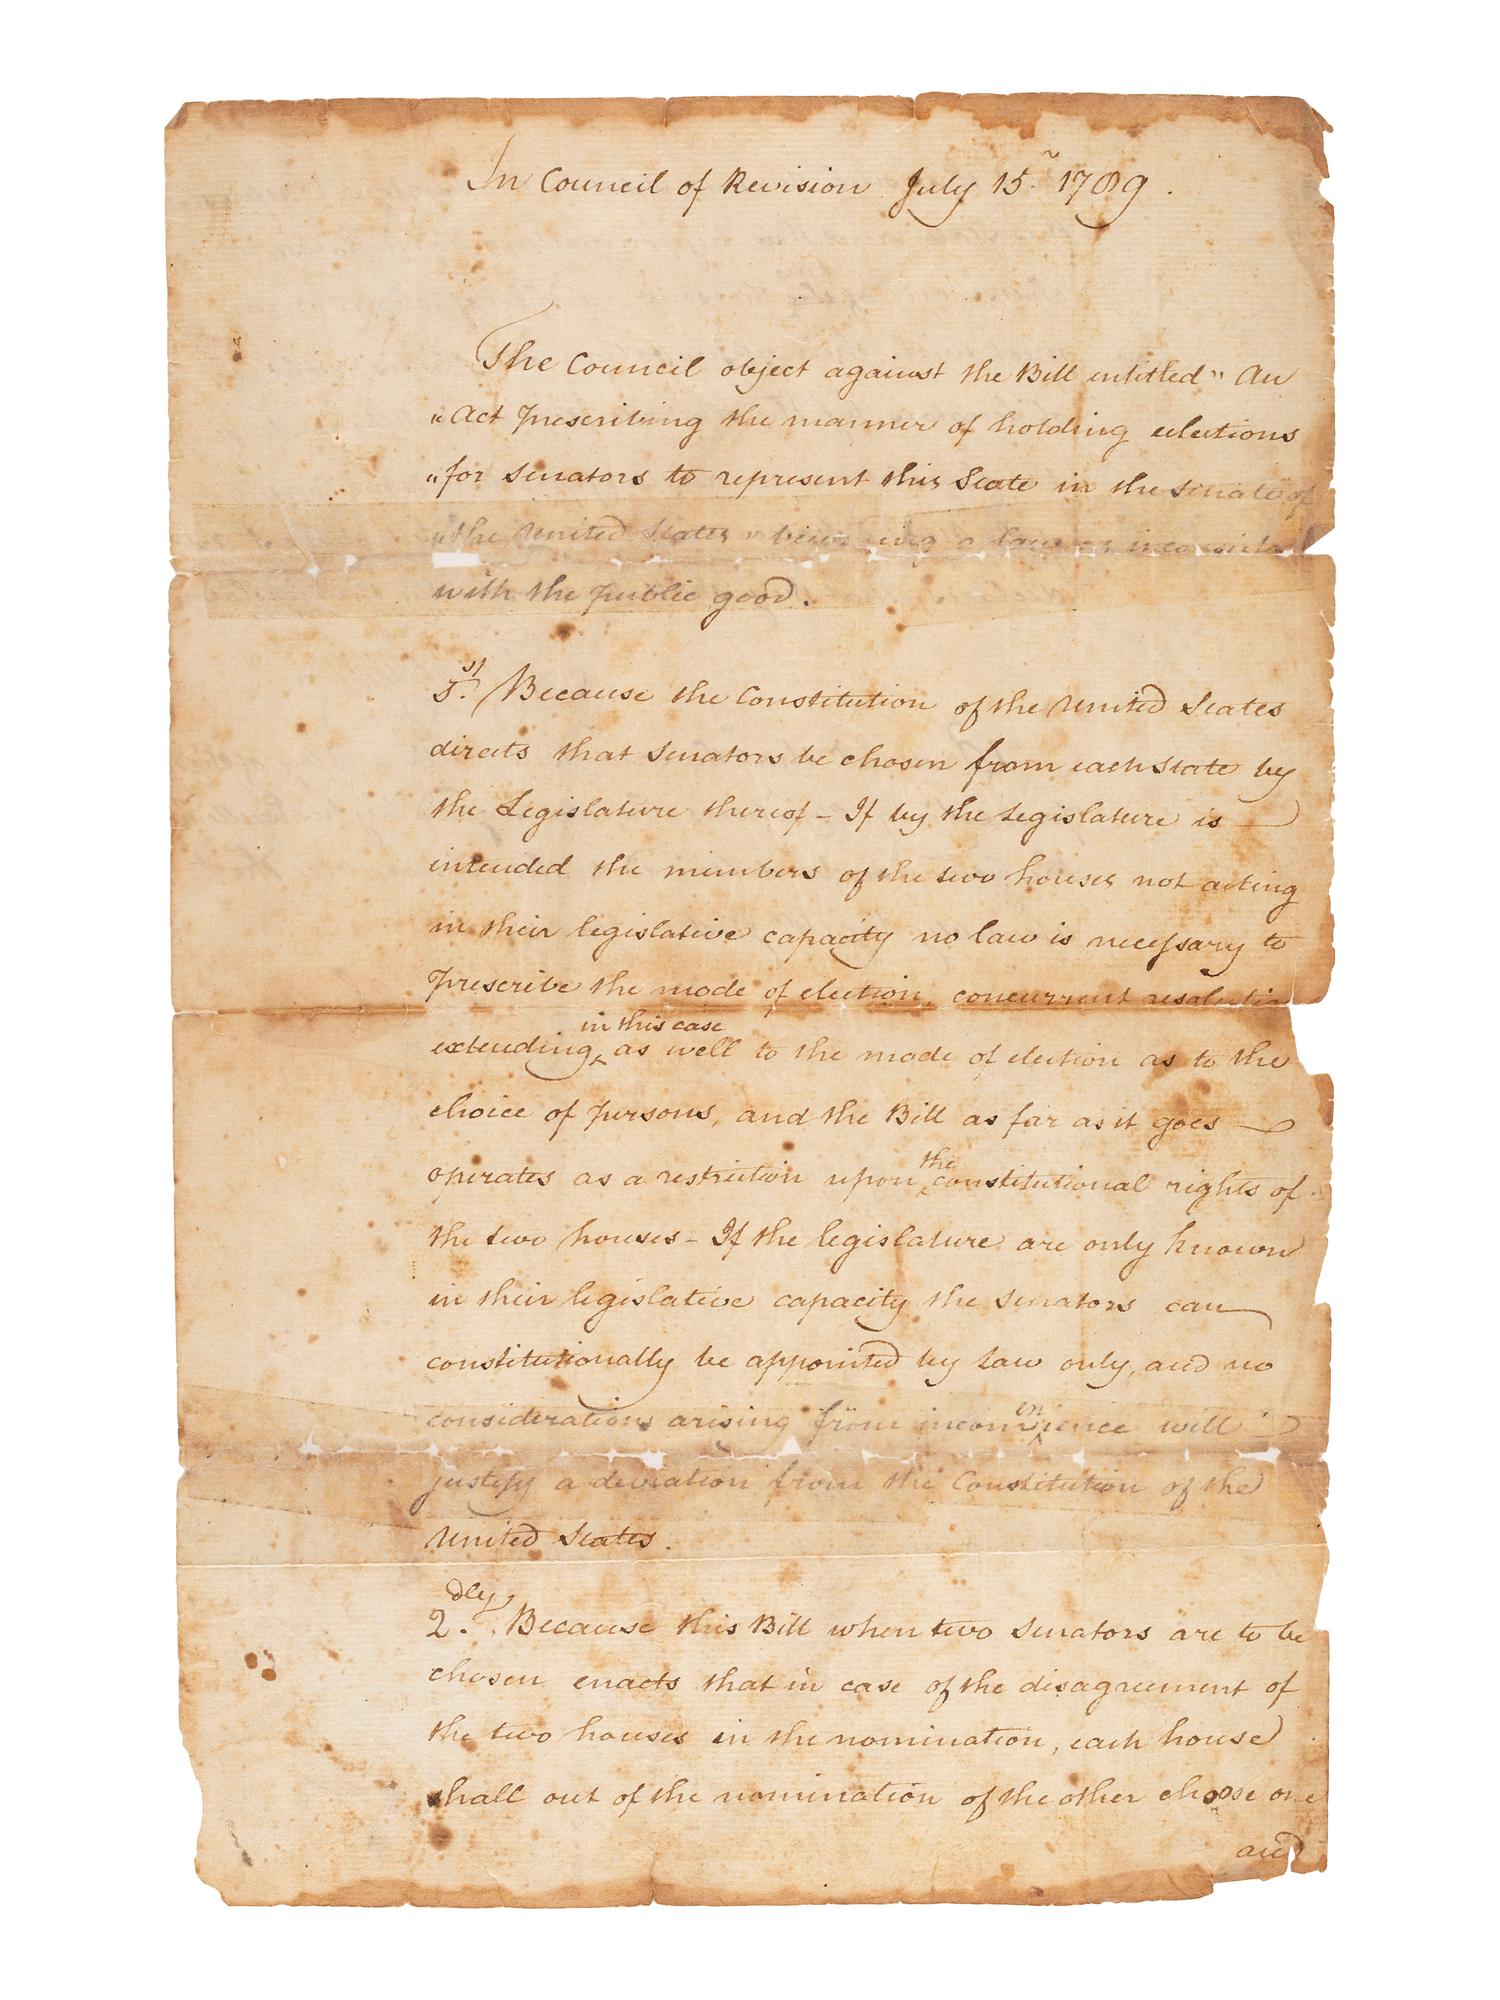 In Council of Revision July 15. 1789.
The Council object against the Bill entitled " An
" Act prescribing the manner of holding elections
" for Senators to represent this State in the Senate of
" the United States " becoming a law as inconsistent
with the public good.
1st. Because the Constitution of the United States
directs that Senators be chosen from each State by
the Legislature thereof - If by the Legislature is
intended the members of the two houses not acting
in their legislative capacity no law is necessary to
prescribe the mode of election, concurrent resolutions
in this case
extending as well to the mode of election as to the
choice of persons, and the Bill as far as it goes
operates as a restriction upon the constitutional rights of
the two houses - If the legislature are only known
in their legislative capacity the Senators can
constitutionally be appointed by Law only, and no
considerations arising from inconvenience will
justify a deviation from the Constitution of the
United States.
2dly. Because this Bill when two Senators are to be
chosen enacts that in case of the disagreement of
the two houses in the nomination, each house
shall out of the nomination of the other choose one
and